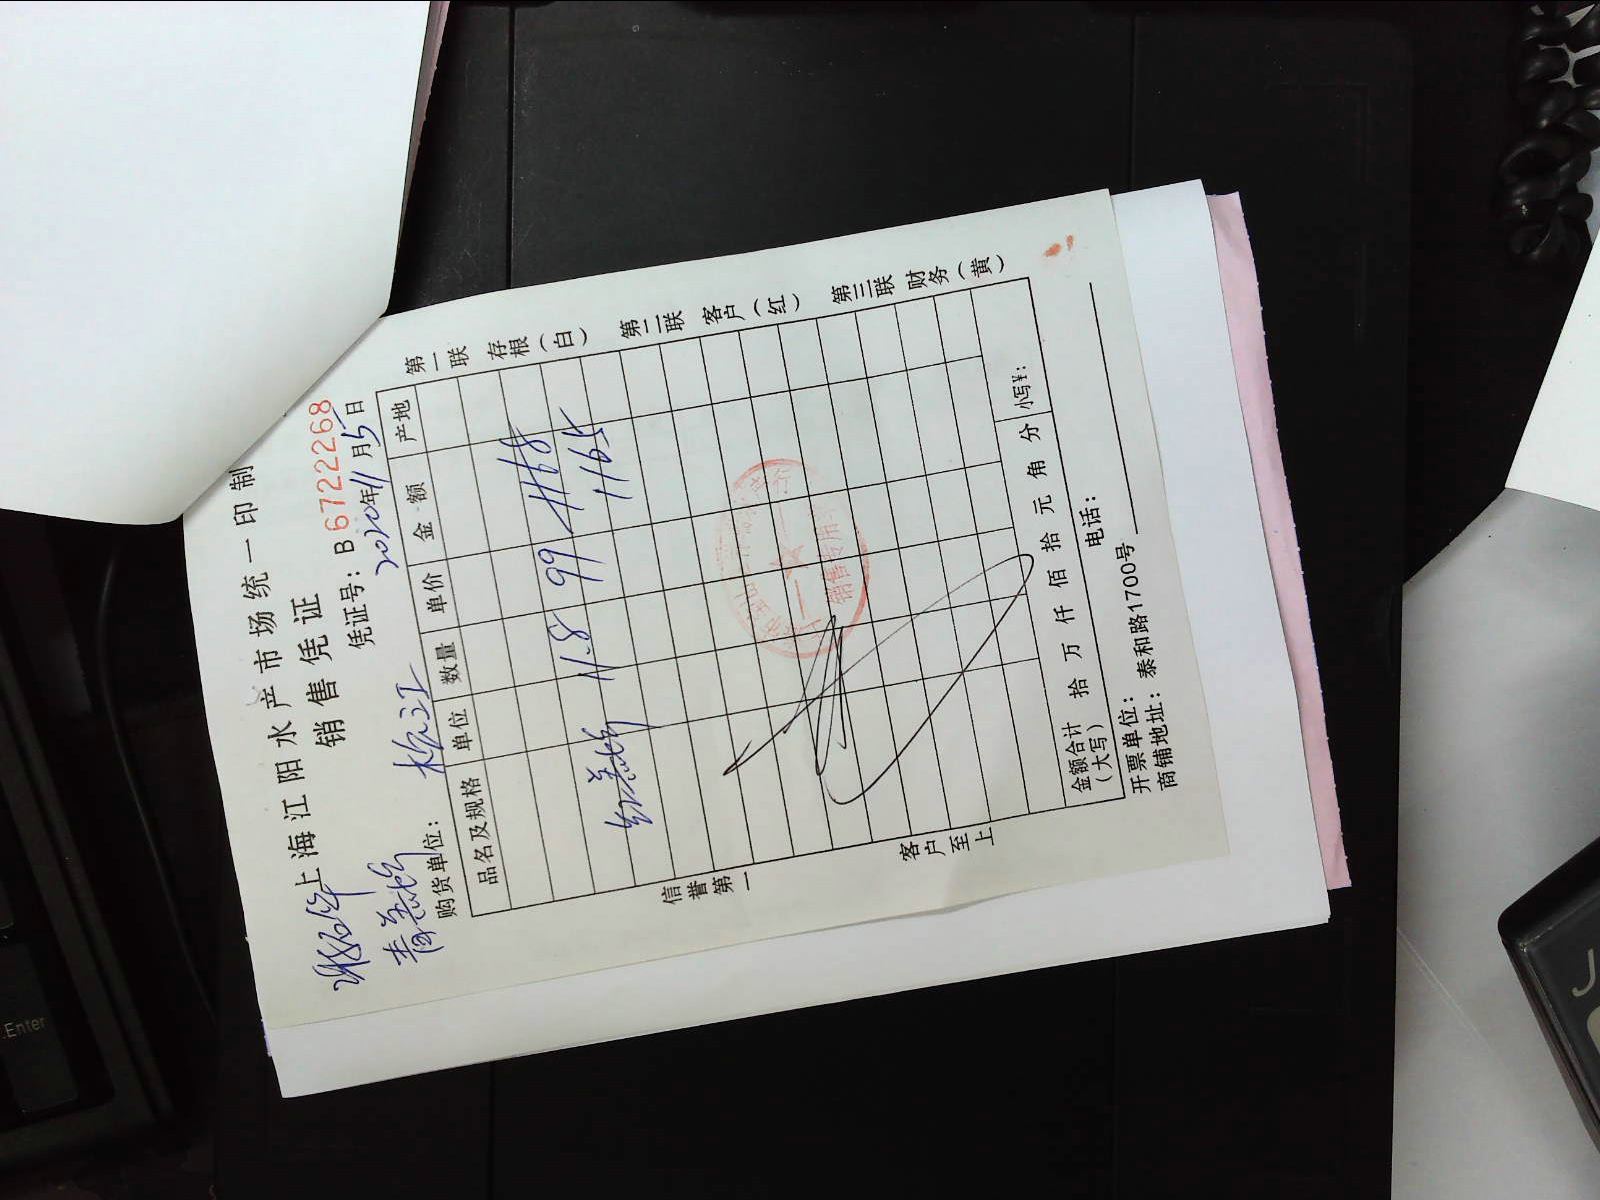 上海江阳水产市场统一印制
销售凭证
凭证号：B 6722268
2020年11月5日
购货单位：
品名及规格 单位 数量 单价 金额 产地
11.8 99 1168
1165
第一联 存根（白） 第二联 客户（红） 第三联 财务（黄）
信誉第一 客户至上
销售专用
金额合计（大写） 拾 万 仟 佰 拾 元 角 分 小写¥：
开票单位： 电话：
商铺地址：泰和路1700号
Enter
J